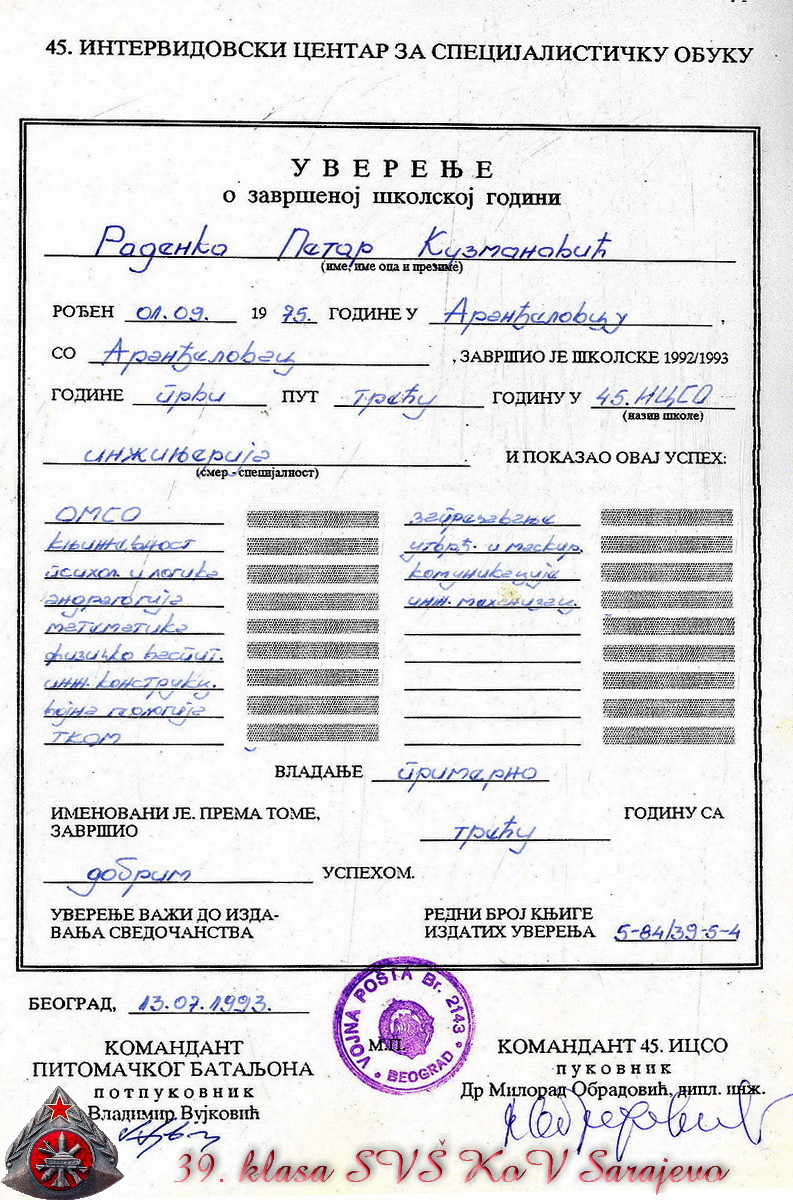 45. ИНТЕРВИДОВСКИ ЦЕНТАР ЗА СПЕЦИЈАЛИСТИЧКУ ОБУКУ
УВЕРЕЊЕ
о завршеној школској години
Раденко Петар Кузмановић
(име, име оца и презиме)
РОЂЕН 01.09. 19 75. ГОДИНЕ У Аранђеловцу ,
СО Аранђеловац , ЗАВРШИО ЈЕ ШКОЛСКЕ 1992/1993
ГОДИНЕ први ПУТ трећу ГОДИНУ У 45. ИЦСО
(назив школе)
инжињерија И ПОКАЗАО ОВАЈ УСПЕХ:
(смер - специјалност)
ОМСО запрезавање
књижевност утврђ. и маскир.
психол. и логика комуникације
андрагогија инж. механизац.
математика
физичко васпит.
инж. конструкц.
војна геологија
ТКОМ
ВЛАДАЊЕ примерно
ИМЕНОВАНИ ЈЕ. ПРЕМА ТОМЕ,
ЗАВРШИО трећу ГОДИНУ СА
добрим УСПЕХОМ.
УВЕРЕЊЕ ВАЖИ ДО ИЗДА-
ВАЊА СВЕДОЧАНСТВА
РЕДНИ БРОЈ КЊИГЕ
ИЗДАТИХ УВЕРЕЊА 5-84/39-5-4
БЕОГРАД, 13.07.1993.
VOJNA POŠTA Br. 2143
BEOGRAD
М.П.
КОМАНДАНТ
ПИТОМАЧКОГ БАТАЉОНА
потпуковник
Владимир Вујковић
КОМАНДАНТ 45. ИЦСО
пуковник
Др Милорад Обрадовић, дипл. инж.
39. klasa SVŠ KoV Sarajevo